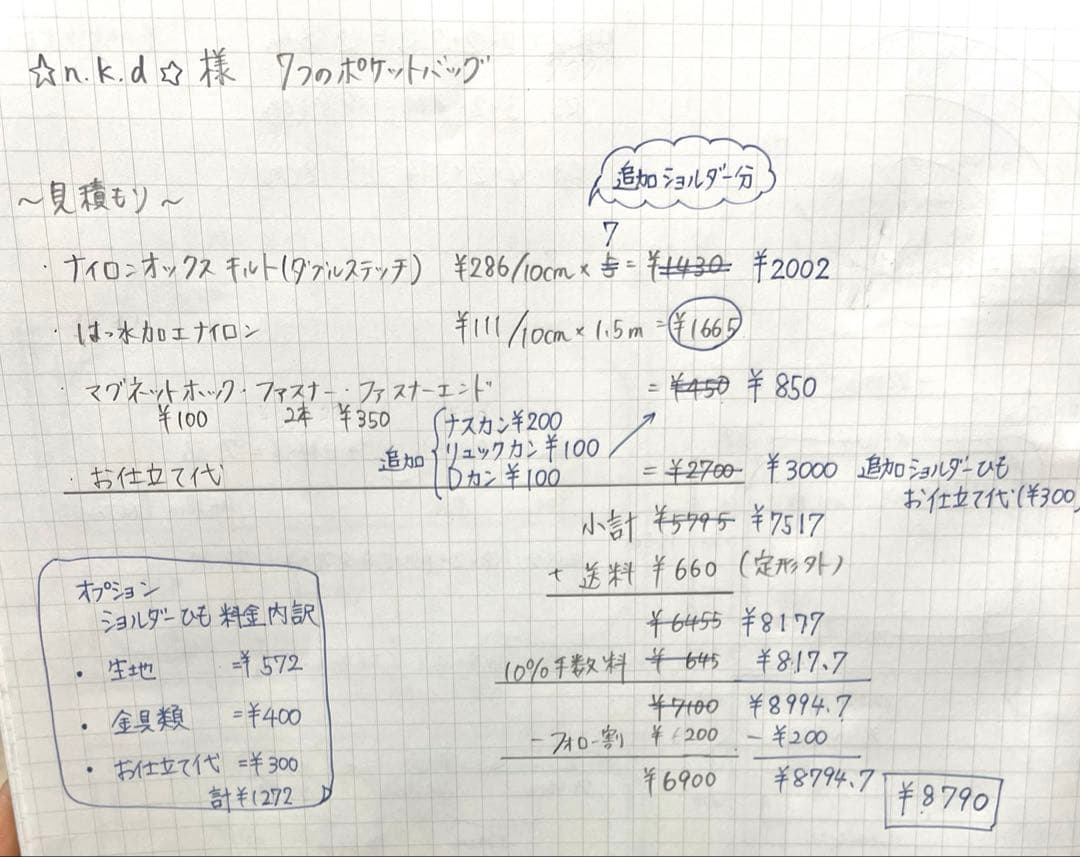 ☆n.k.d☆様 7つのポケットバッグ
〜見積もり〜
追加ショルダー分
7
・ナイロンオックスキルト(ダブルステッチ) ¥286/10cm×5=¥1430 ¥2002
・はっ水加工ナイロン ¥111/10cm×1.5m=¥1665
・マグネットホック・ファスナー・ファスナーエンド =¥450 ¥850
¥100 2本 ¥350
追加 ナスカン¥200
リュックカン¥100
Dカン¥100
・お仕立て代 =¥2700 ¥3000 追加ショルダーひも
お仕立て代(¥300)
小計 ¥5795 ¥7517
+送料 ¥660 (定形外)
¥6455 ¥8177
10%手数料 ¥645 ¥817.7
¥7100 ¥8994.7
-フォロー割 ¥200 -¥200
¥6900 ¥8794.7 ¥8790
オプション
ショルダーひも料金内訳
・生地 =¥572
・金具類 =¥400
・お仕立て代 =¥300
計¥1272